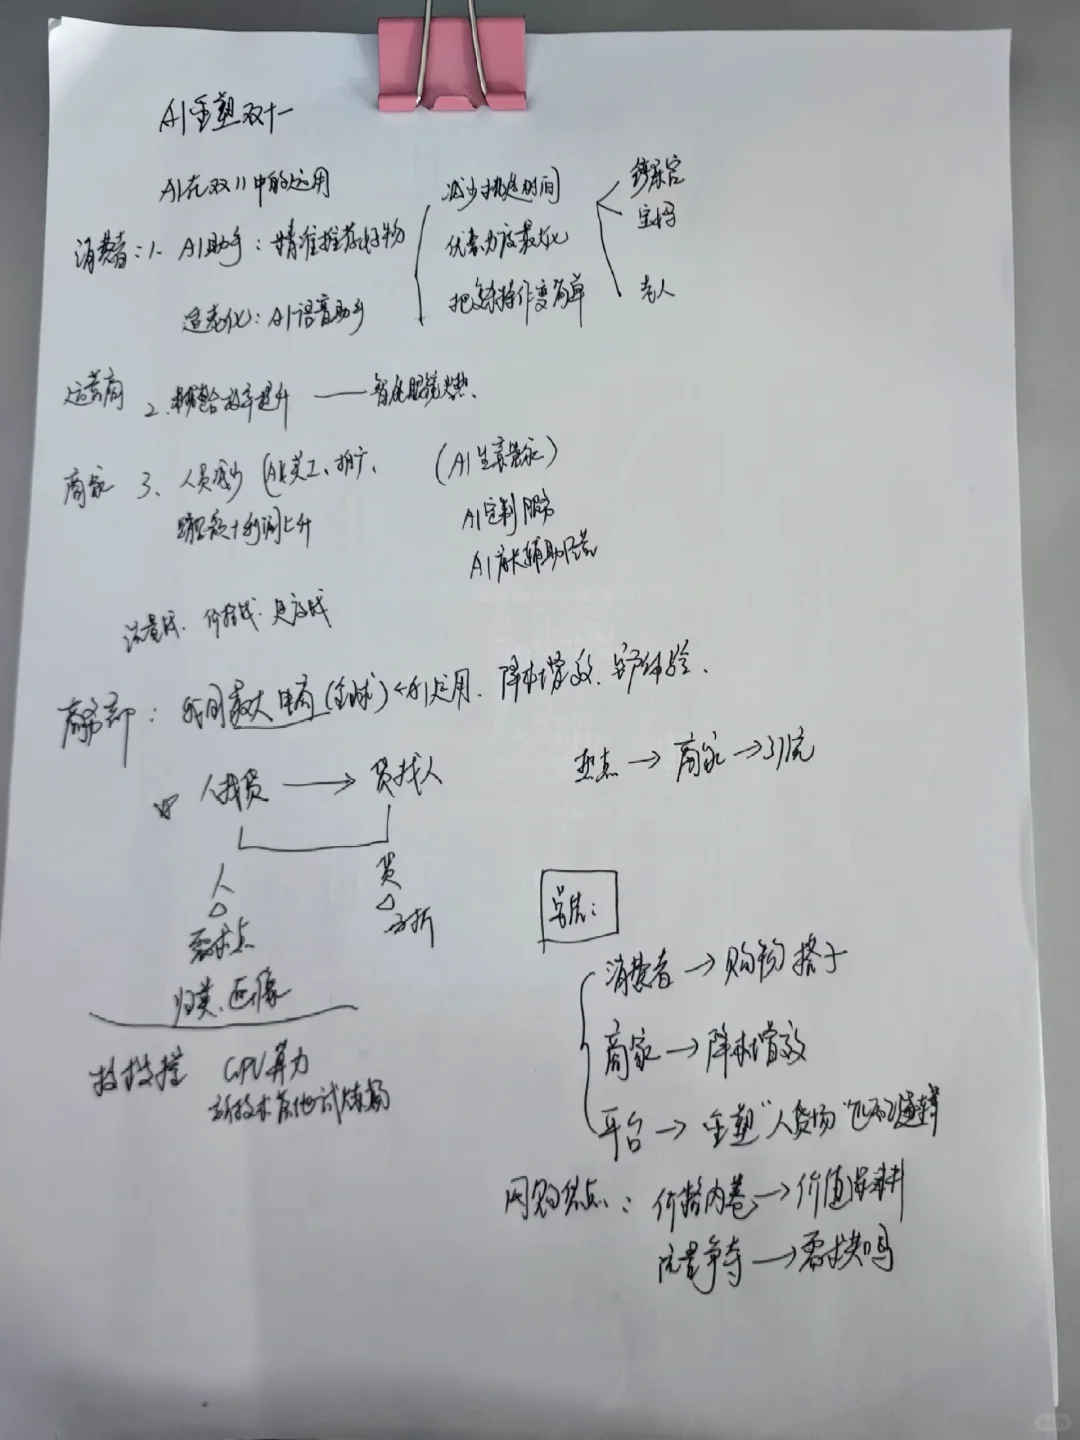 AI重塑双十一
AI在双11中的运用
消费者：1. AI助手：精准推荐好物
减少挑选时间
优惠力度最大化
把复杂操作变简单
宝妈
老人
适老化：AI语音助手
运营商 2. 效率提升 —— 智能眼镜火热.
商家 3、人员减少 (AI美工、推广、 (AI生意管家)
利润上升
AI定制服务
AI 辅助
流量战. 价格战. 速度战
商务部： 我国最大电商(全球) AI运用. 降本增效. 客户体验.
人找货 → 货找人
热点 → 商家 → 引流
人 货
需求点
归类. 画像
GPU算力
新技术落地试炼场
总结：
消费者 → 购物搭子
商家 → 降本增效
平台 → 重塑"人货场"匹配逻辑
网购焦点： 价格内卷 → 价值
流量争夺 → 需求